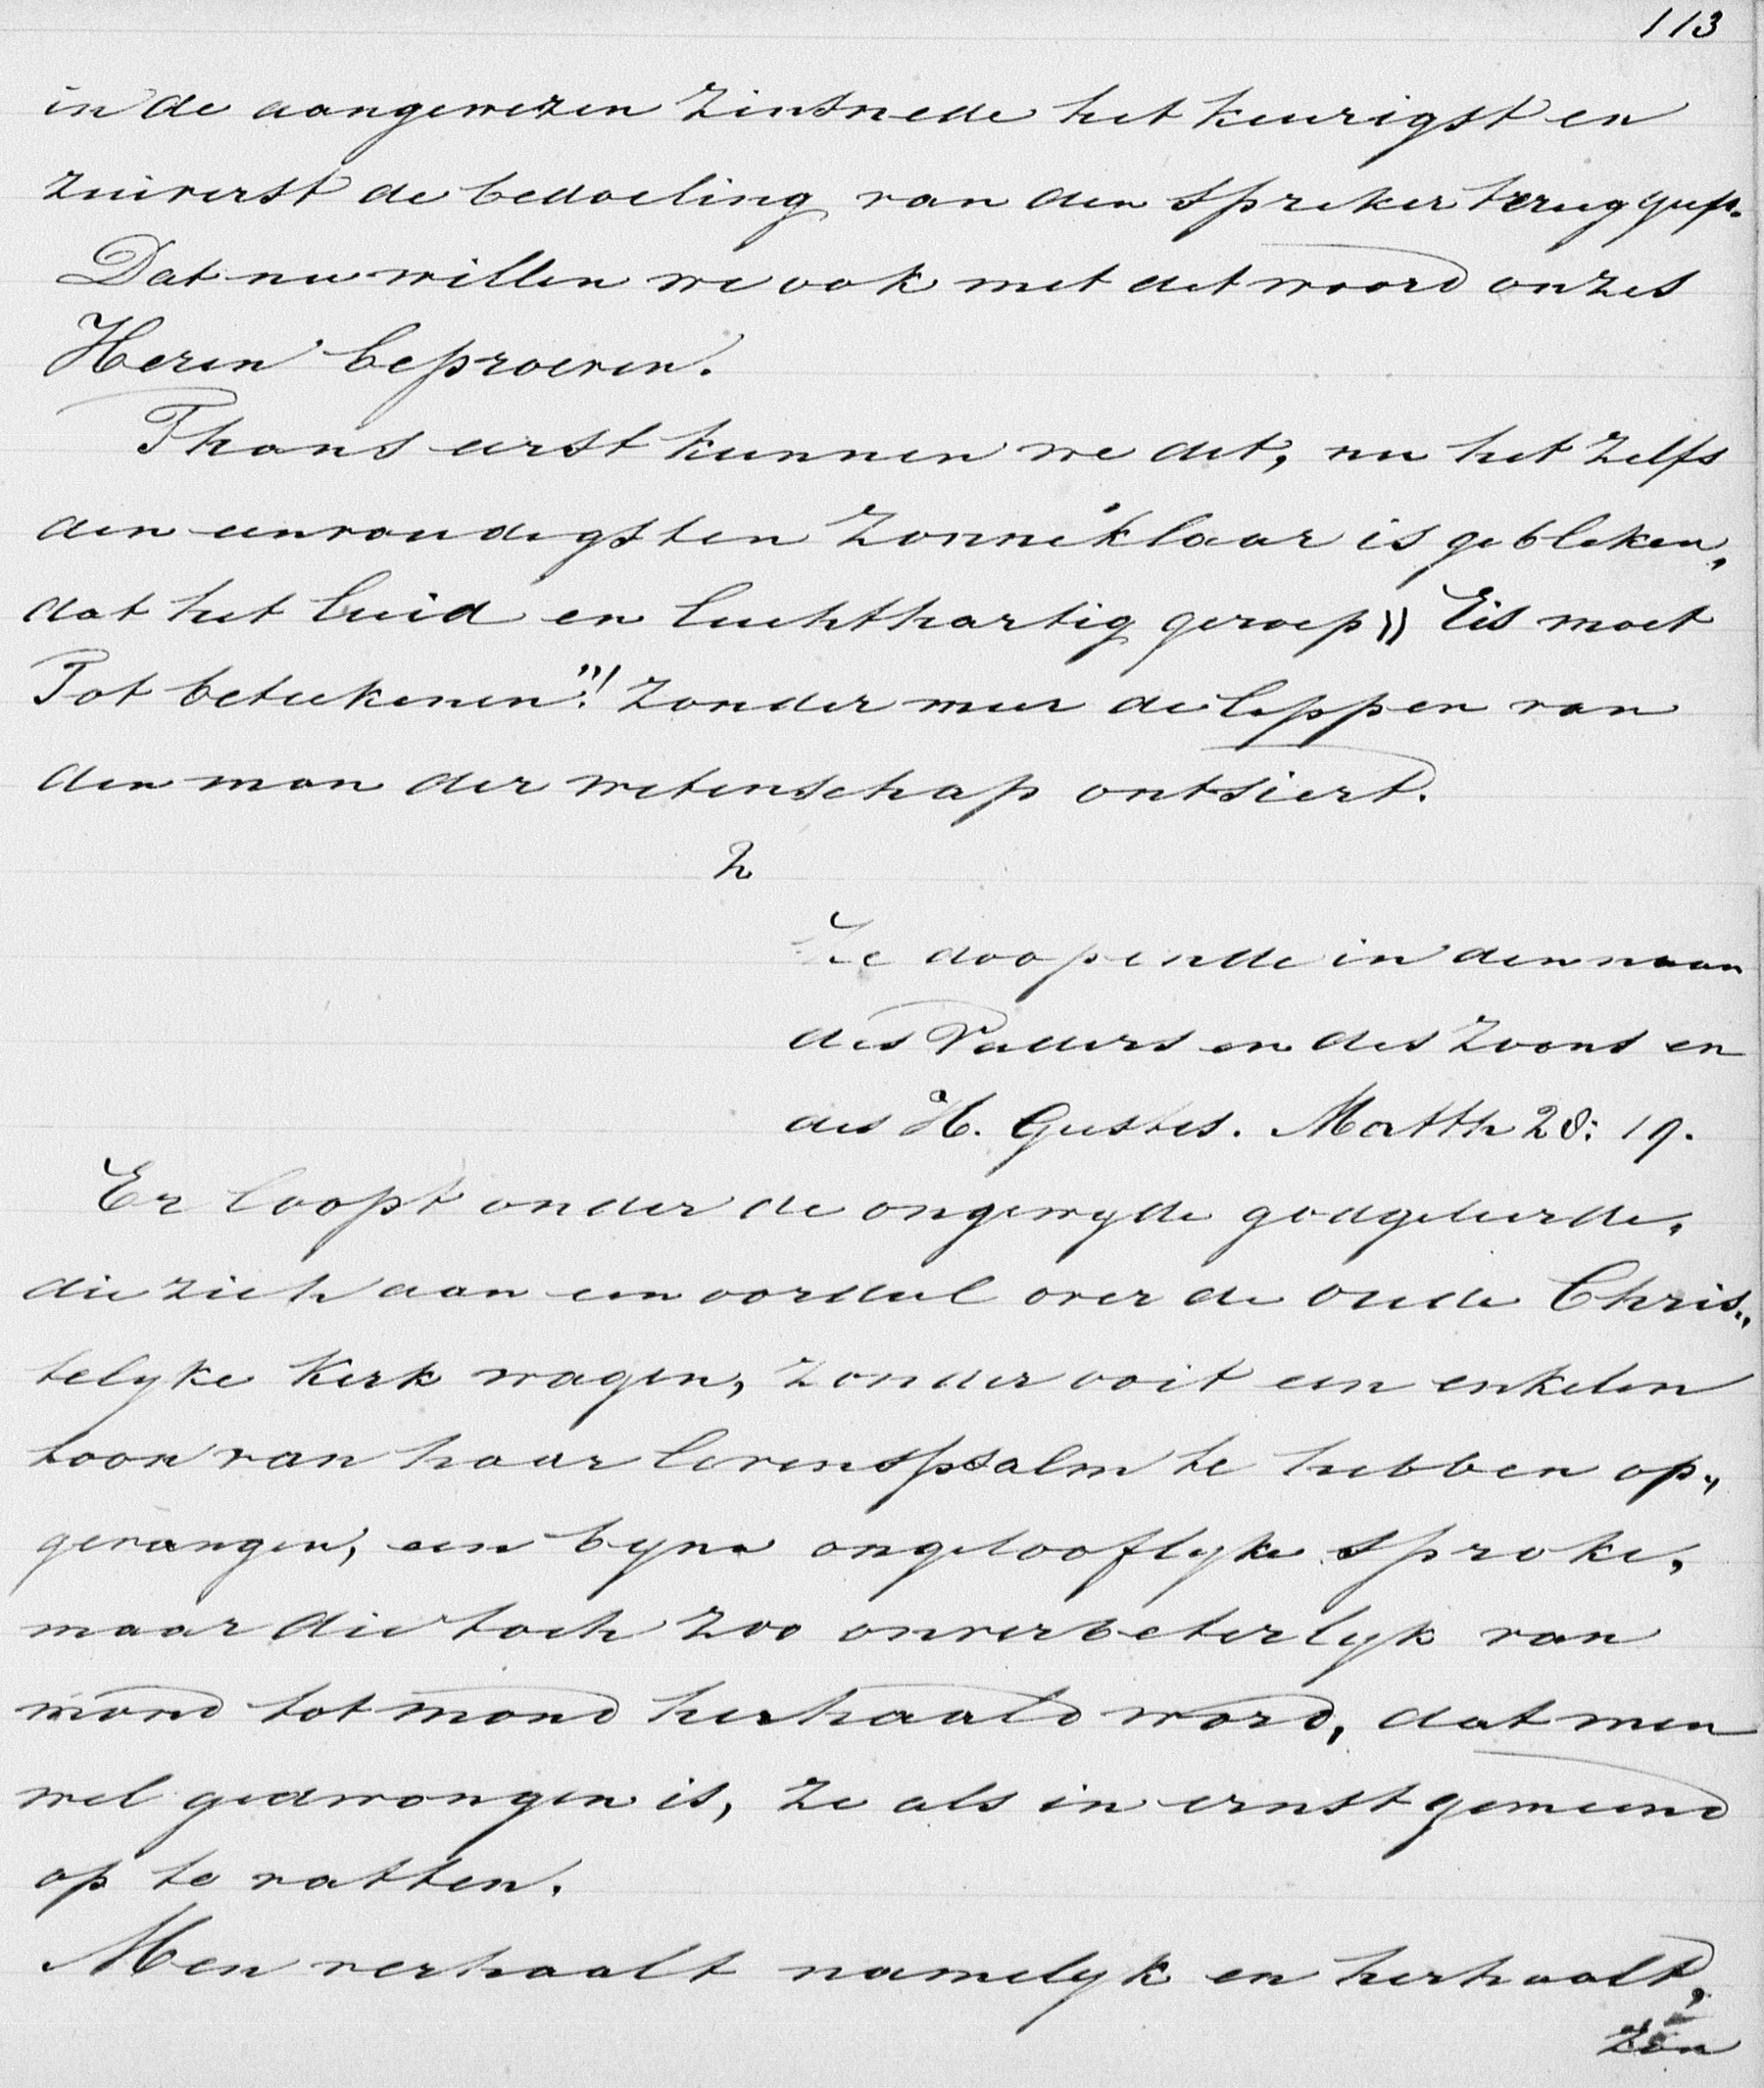 113
in de aangewezen zinsnede het keurigst en
zuiverst de bedoeling van den spreker teruggeeft.
Dat nu willen we ook met dit woord onzes
Heren beproeven.
Thans eerst kunnen we dit, nu het zelfs
den eenvoudigsten zonneklaar is gebleken,
dat het luid en luchthartig geroep „Eis moet
Tot beteekenen"! zonder meer de lippen van
den man der wetenschap ontsiert.
2
Ze doopende in den naam
des Vaders en des Zoons en
des H. Geestes. Matth 28: 19.
Er loopt onder de ongewyde godgeleerde,
die zich aan een oordeel over de oude Chris„
telyke Kerk wagen, zonder ooit een enkelen
toon van haar levenspsalm te hebben op„
gevangen, een byna ongelooflyke sproke,
maar die toch zoo onverbeterlyk van
mond tot mond herhaald word, dat men
wel gedwongen is, ze als in ernst gemeend
op te vatten.
Men verhaalt namelyk en herhaalt,
zon